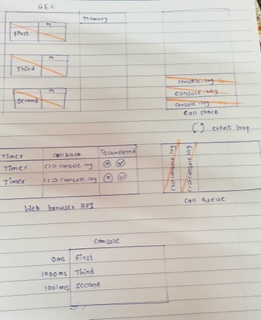 GEC
Memory
First
Third
Second
console.log
console.log
console.log
Call stack
event loop
Timer callback iscompleted
Timer () => console.log
Timer () => console.log
Web browser API
()=>console.log
()=>console.log
Call queue
Console
0ms First
1000ms Third
1001ms Second